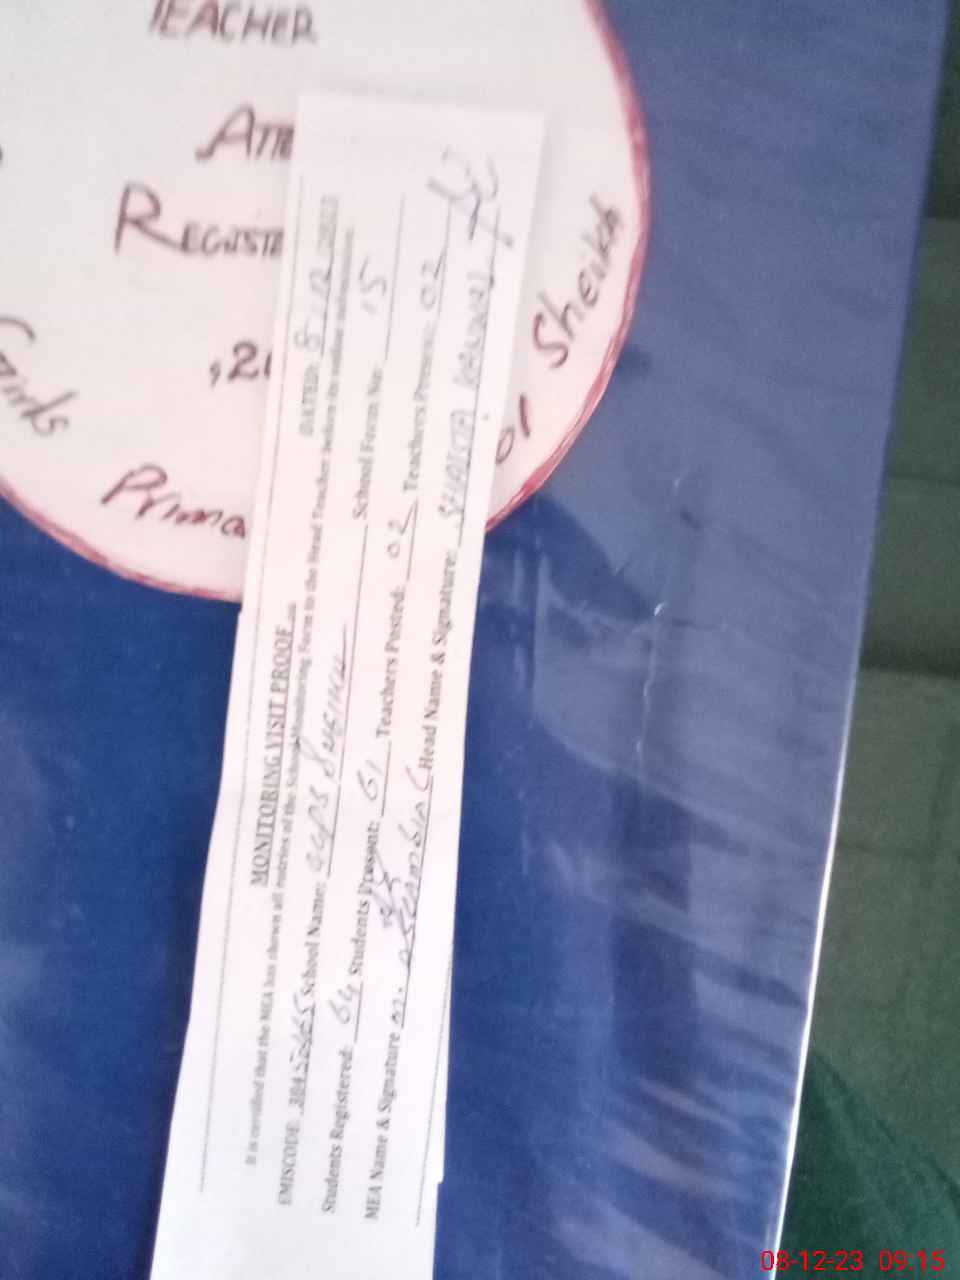 TEACHER
REGISTE
Girls
Prima
Sheikh
MONITORING VISIT PROOF
It is certified that the MEA has shown all entries of the School Monitoring Form to the Head Teacher before its online submission.
DATED: 8.12.2023
EMISCODE: School Name: GGPS
School Form No: 15
Students Registered: 64 Students Present: 61 Teachers Posted: 02 Teachers Present: 02
MEA Name & Signature Head Name & Signature: SHAISTA KANWAL
08-12-23 09:15